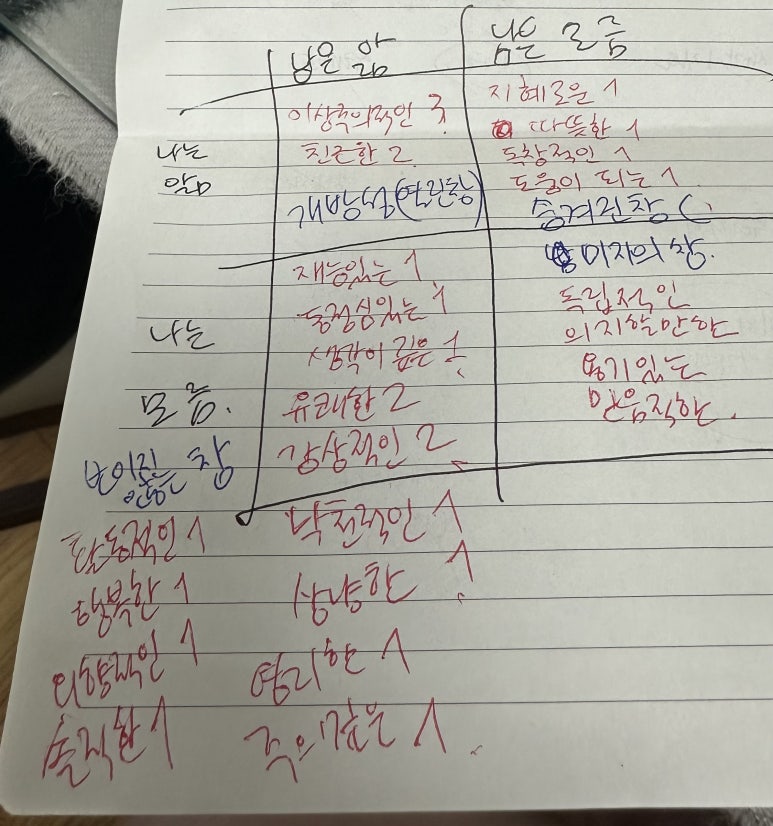 남은 앎
남은 모름
이상주의적인 3
지혜로운 1
따뜻한 1
나는
친근한 2
독창적인 1
앎
도움이 되는 1
개방성(열린창)
숨겨진 창
미지의 창.
재능있는 1
동정심있는 1
독립적인
나는
의지할만한
생각이 깊은 1
용기있는
모름.
유쾌한 2
믿음직한.
보이지 않는 창
감상적인 2
활동적인 1
낙천적인 1
행복한 1
상냥한 1
외향적인 1
영리한 1
솔직한 1
주의깊은 1